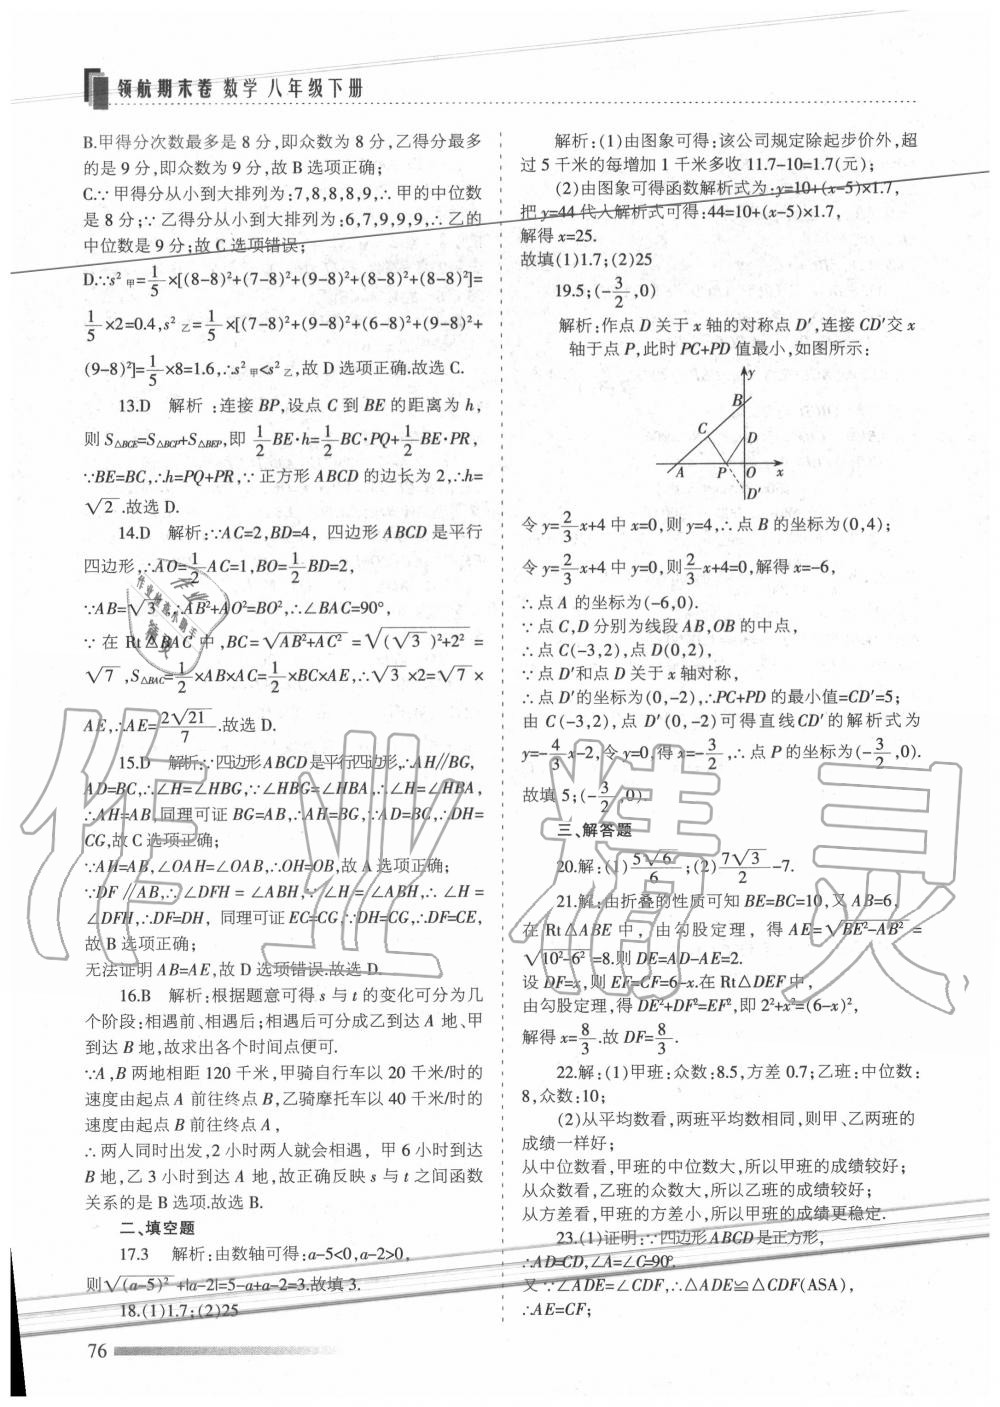 领航期末卷 数学 八年级下册
B.甲得分次数最多是 8 分,即众数为 8 分,乙得分最多
的是 9 分,即众数为 9 分,故 B 选项正确;
C.∵甲得分从小到大排列为:7,8,8,8,9,∴甲的中位数
是 8 分;∵乙得分从小到大排列为:6,7,9,9,9,∴乙的
中位数是 9 分;故 C 选项错误;
D.∵s²甲=1/5×[(8-8)²+(7-8)²+(9-8)²+(8-8)²+(8-8)²]=
1/5×2=0.4,s²乙=1/5×[(7-8)²+(9-8)²+(6-8)²+(9-8)²+
(9-8)²]=1/5×8=1.6,∴s²甲<s²乙,故 D 选项正确.故选 C.
13.D 解析:连接 BP,设点 C 到 BE 的距离为 h,
则 S△BCE=S△BCP+S△BEP,即 1/2BE·h=1/2BC·PQ+1/2BE·PR,
∵BE=BC,∴h=PQ+PR,∵正方形 ABCD 的边长为 2,∴h=
√2.故选 D.
14.D 解析:∵AC=2,BD=4,四边形 ABCD 是平行
四边形,∴AO=1/2AC=1,BO=1/2BD=2,
∵AB=√3,∴AB²+AO²=BO²,∴∠BAC=90°,
∵在 Rt△BAC 中,BC=√(AB²+AC²)=√((√3)²+2²)=
√7,S△BAC=1/2×AB×AC=1/2×BC×AE,∴√3×2=√7×
AE,∴AE=2√21/7.故选 D.
15.D 解析:∵四边形 ABCD 是平行四边形,∴AH∥BG,
AD=BC,∴∠H=∠HBG,∵∠HBG=∠HBA,∴∠H=∠HBA,
∴AH=AB,同理可证 BG=AB,∴AH=BG,∵AD=BC,∴DH=
CG,故 C 选项正确;
∵AH=AB,∠OAH=∠OAB,∴OH=OB,故 A 选项正确;
∵DF∥AB,∴∠DFH=∠ABH,∵∠H=∠ABH,∴∠H=
∠DFH,∴DF=DH,同理可证 EC=CG,∵DH=CG,∴DF=CE,
故 B 选项正确;
无法证明 AB=AE,故 D 选项错误.故选 D.
16.B 解析:根据题意可得 s 与 t 的变化可分为几
个阶段:相遇前、相遇后;相遇后可分成乙到达 A 地、甲
到达 B 地,故求出各个时间点便可.
∵A,B 两地相距 120 千米,甲骑自行车以 20 千米/时的
速度由起点 A 前往终点 B,乙骑摩托车以 40 千米/时的
速度由起点 B 前往终点 A,
∴两人同时出发,2 小时两人就会相遇,甲 6 小时到达
B 地,乙 3 小时到达 A 地,故正确反映 s 与 t 之间函数
关系的是 B 选项.故选 B.
二、填空题
17.3 解析:由数轴可得:a-5<0,a-2>0,
则√((a-5)²)+|a-2|=5-a+a-2=3.故填 3.
18.(1)1.7;(2)25
解析:(1)由图象可得:该公司规定除起步价外,超
过 5 千米的每增加 1 千米多收 11.7-10=1.7(元);
(2)由图象可得函数解析式为:y=10+(x-5)×1.7,
把 y=44 代入解析式可得:44=10+(x-5)×1.7,
解得 x=25.
故填(1)1.7;(2)25
19.5;(-3/2,0)
解析:作点 D 关于 x 轴的对称点 D′,连接 CD′交 x
轴于点 P,此时 PC+PD 值最小,如图所示:
y
B
C
D
A
P
O
x
D′
令 y=2/3x+4 中 x=0,则 y=4,∴点 B 的坐标为(0,4);
令 y=2/3x+4 中 y=0,则2/3x+4=0,解得 x=-6,
∴点 A 的坐标为(-6,0).
∵点 C,D 分别为线段 AB,OB 的中点,
∴点 C(-3,2),点 D(0,2),
∵点 D′和点 D 关于 x 轴对称,
∴点 D′的坐标为(0,-2),∴PC+PD 的最小值=CD′=5;
由 C(-3,2),点 D′(0,-2)可得直线 CD′的解析式为
y=-4/3x-2,令 y=0,得 x=-3/2,∴点 P 的坐标为(-3/2,0).
故填 5;(-3/2,0).
三、解答题
20.解:(1)5√6/6;(2)7√3/2-7.
21.解:由折叠的性质可知 BE=BC=10,又 AB=6,
在 Rt△ABE 中,由勾股定理,得 AE=√(BE²-AB²)=
√(10²-6²)=8.则 DE=AD-AE=2.
设 DF=x,则 EF=CF=6-x.在 Rt△DEF 中,
由勾股定理,得 DE²+DF²=EF²,即 2²+x²=(6-x)²,
解得 x=8/3.故 DF=8/3.
22.解:(1)甲班:众数:8.5,方差 0.7;乙班:中位数:
8,众数:10;
(2)从平均数看,两班平均数相同,则甲、乙两班的
成绩一样好;
从中位数看,甲班的中位数大,所以甲班的成绩较好;
从众数看,乙班的众数大,所以乙班的成绩较好;
从方差看,甲班的方差小,所以甲班的成绩更稳定.
23.(1)证明:∵四边形 ABCD 是正方形,
∴AD=CD,∠A=∠C=90°.
又∵∠ADE=∠CDF,∴△ADE≌△CDF(ASA),
∴AE=CF;
76
作业精灵